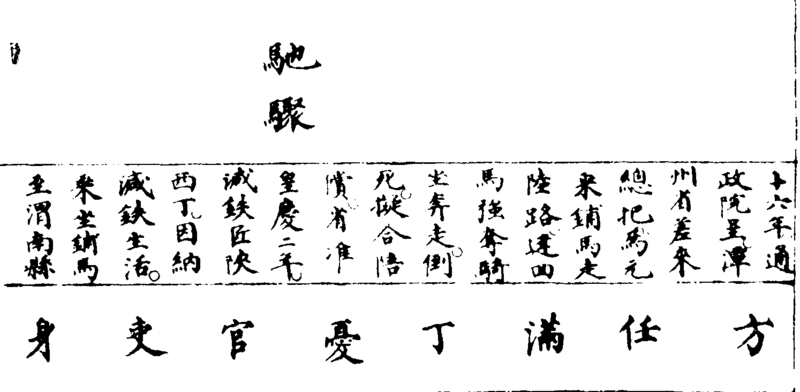 馳驟
十六年通
政院呈潭
州省差來
總把馬元
來鋪馬走
陸路違四
馬強奪騎
坐奔走倒
死擬合陪
償省准
皇慶二年
減鉄匠陝
西丁因納
減鉄生活
乘坐鋪馬
至渭南縣
方
任
滿
丁
憂
官
吏
身